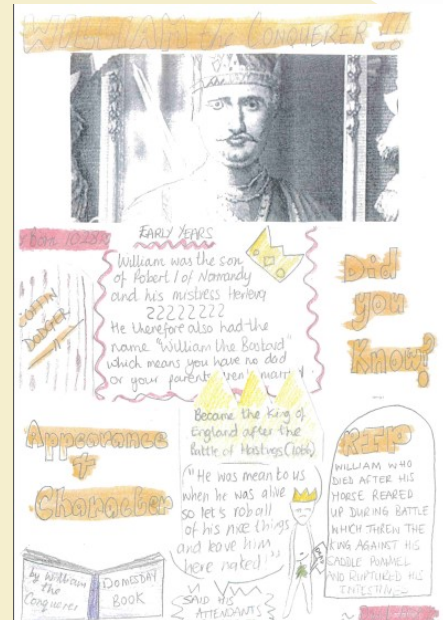 WILLIAM the CONQUERER!!
Born 1028
EARLY YEARS
William was the son
of Robert I of Normandy
and his mistress Herleva
????????
He therefore also had the
name "William the Bastard"
which means you have no dad
or your parents weren't married
COFFIN
DODGER
Did
you
Know?
Appearance
+
Character
Became the King of
England after the
Battle of Hastings (1066)
"He was mean to us
when he was alive
so let's rob all
of his nice things
and leave him
here naked!"
SAID HIS
ATTENDANTS
RIP
WILLIAM WHO
DIED AFTER HIS
HORSE REARED
UP DURING BATTLE
WHICH THREW THE
KING AGAINST HIS
SADDLE POMMEL
AND RUPTURED HIS
INTESTINE
by William
the
Conquerer
DOMESDAY
BOOK